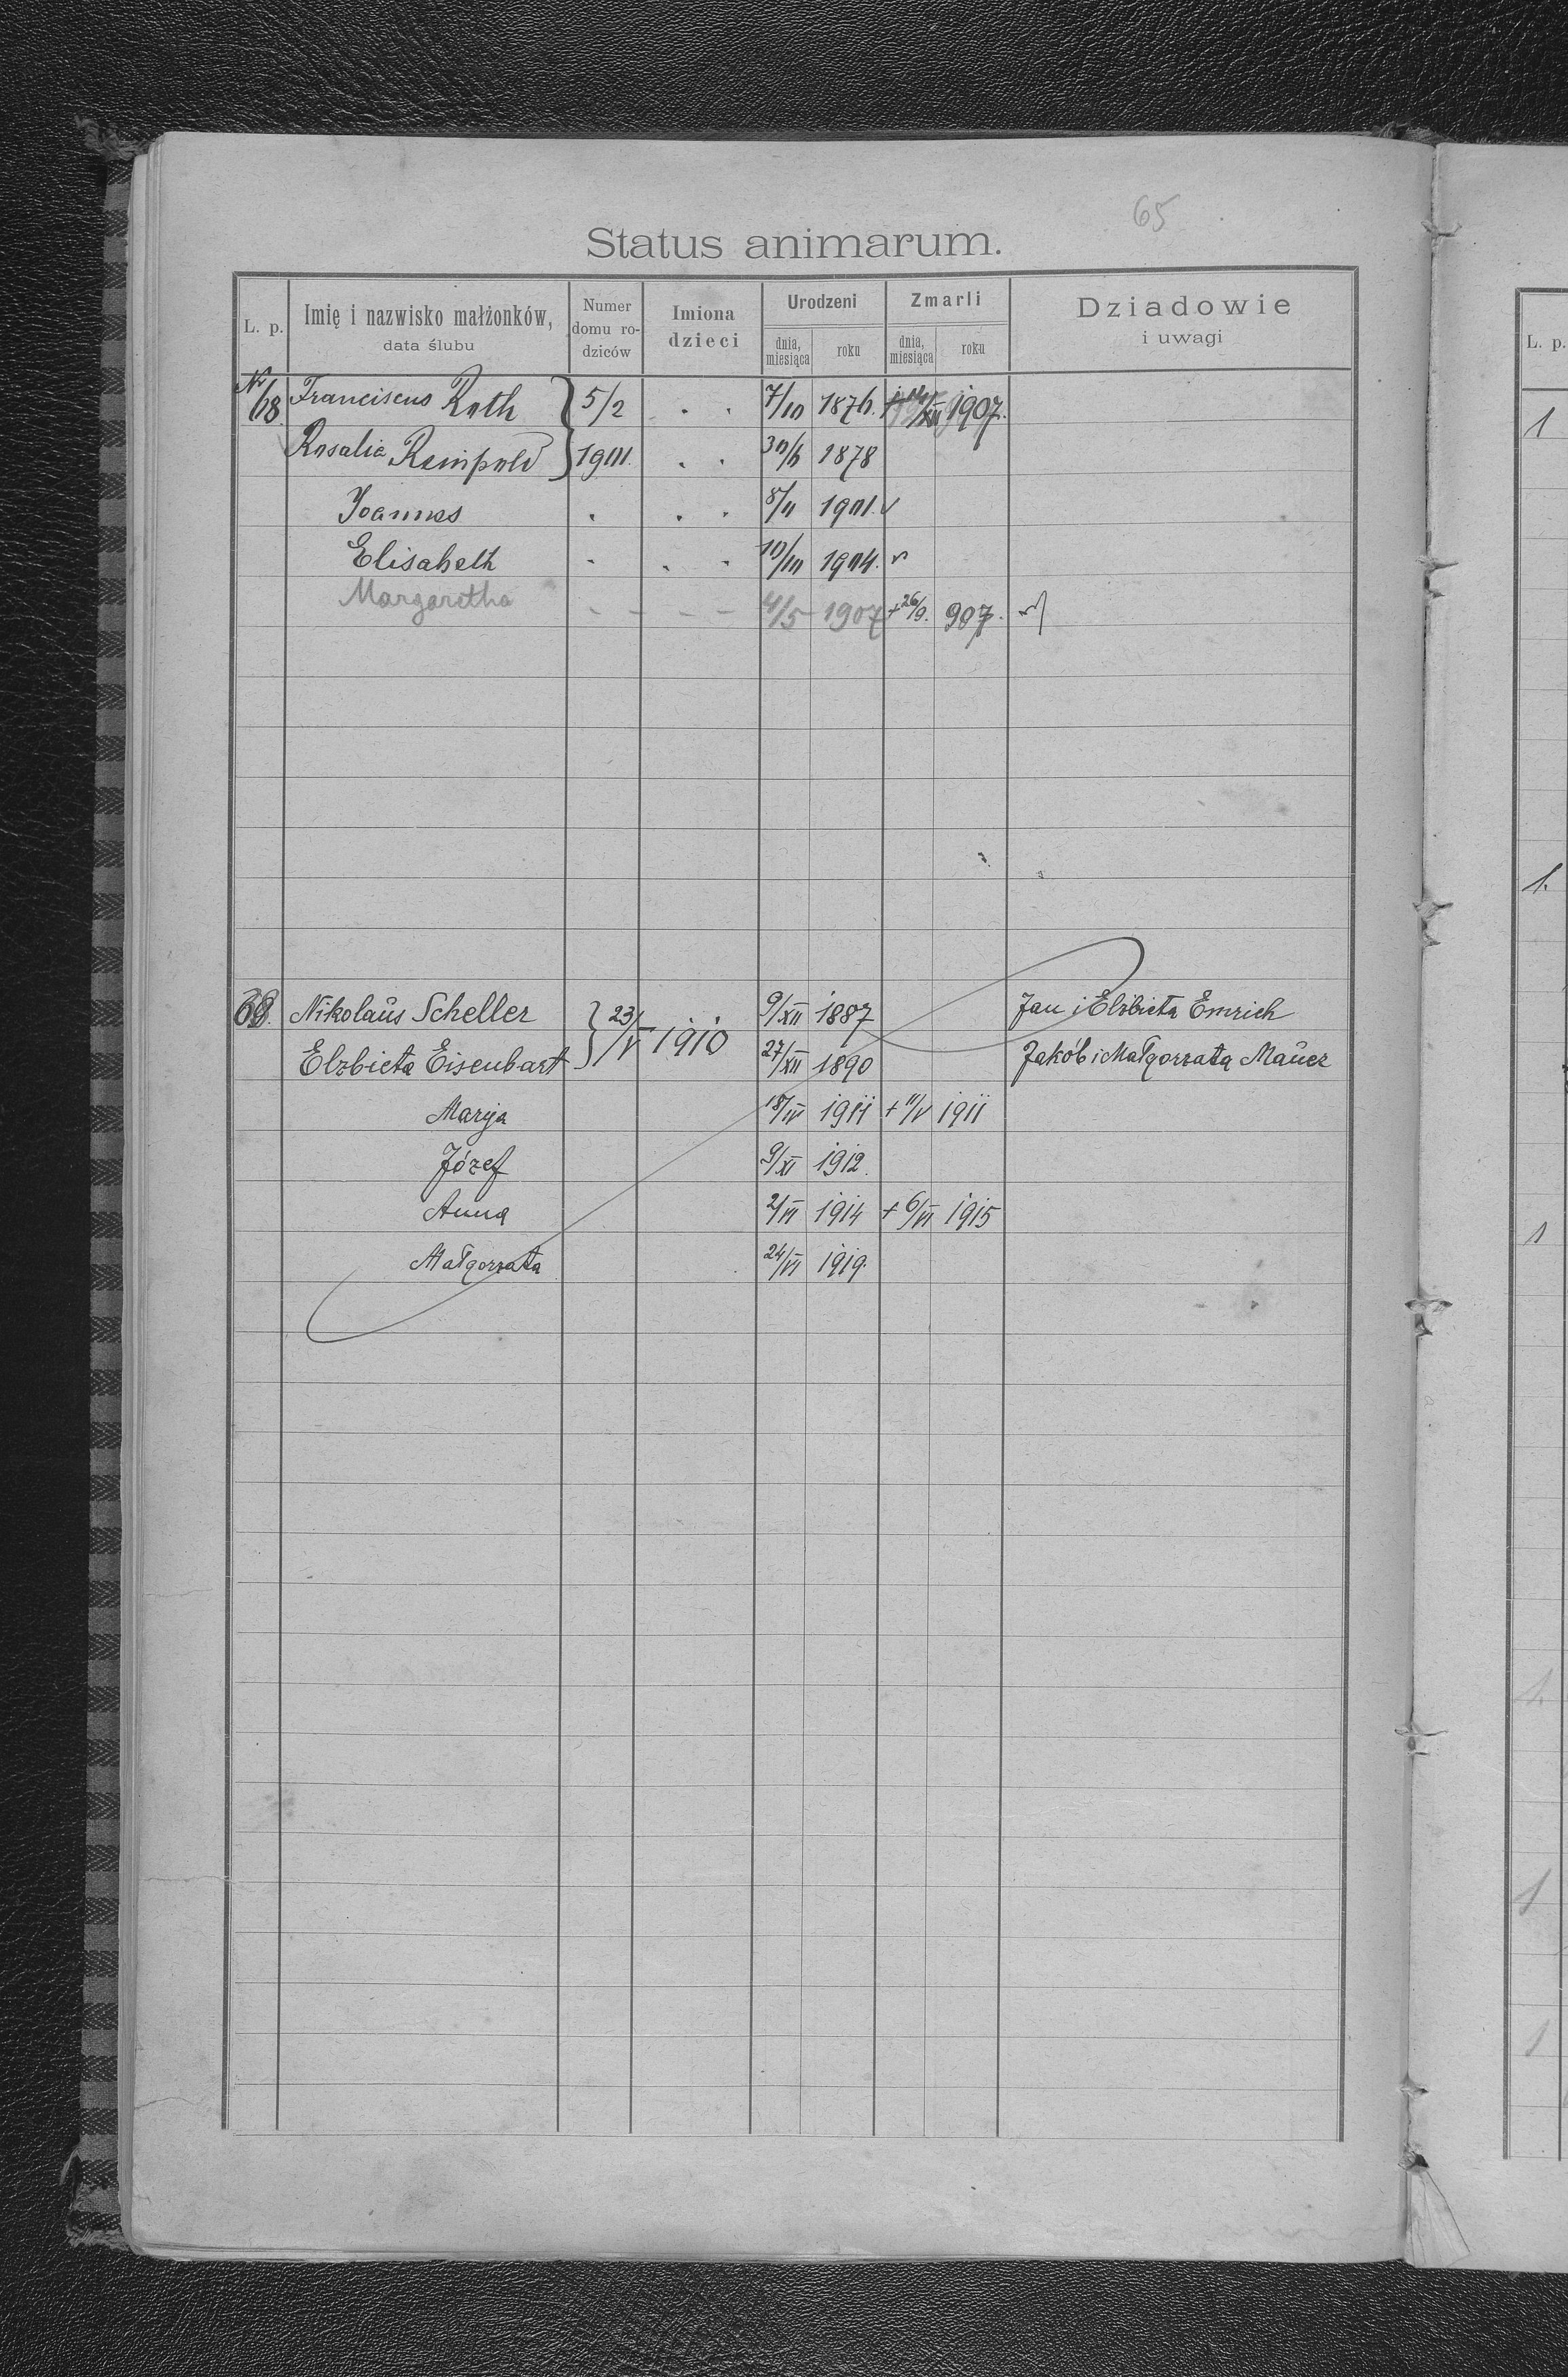 65
Status animarum.
L. p. | Imię i nazwisko małżonków, data ślubu | Numer domu ro-dziców | Imiona dzieci | Urodzeni dnia, miesiąca | roku | Zmarli dnia, miesiąca | roku | Dziadowie i uwagi
Nr 68. Franciscus Roth } 5/2 . . 7/10 1876. + XII 1907.
Rosalia Reinpold } 1901. . . 30/6 1878
Joannes . . . 8/11 1901. ✓
Elisabeth . . . 10/III 1904. ✓
Margaretha - - - - 4/5 1907 + 26/9. 907.
68. Nikolaus Scheller } 23/V 1910 9/XII 1887 Jan i Elżbieta Emrich
Elżbieta Eisenbart 27/XII 1890 Jakób i Małgorzata Mauer
Marya 18/IV 1911 + 11/V 1911
Józef 9/XI 1912.
Anna 2/VI 1914 + 6/VI 1915
Małgorzata 24/VI 1919.
L. p.
1
1.
1
1.
1
1